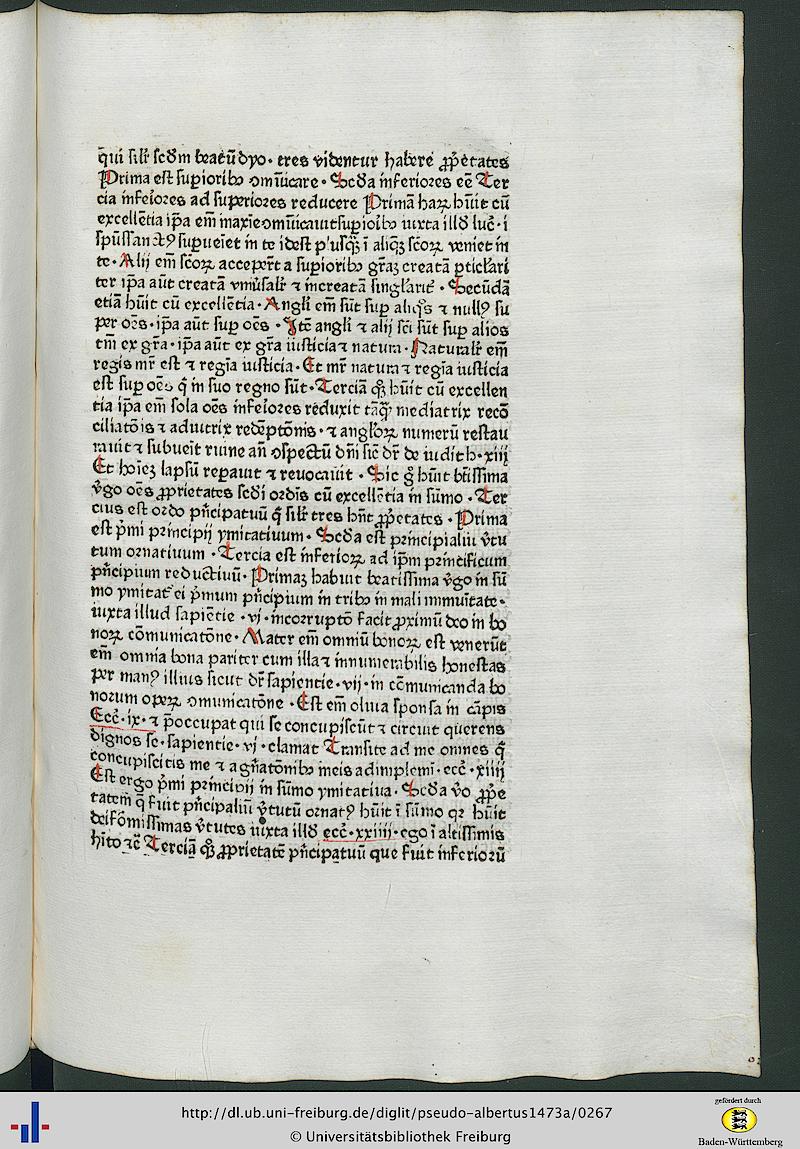 q̄ui silr̄ scd̄m beatū dyo· tres videntur habere ꝓṗetates
Prima est supioribꝰ ꝯmūicare · Scd̄a inferiores eē Ter
cia infeīores ad superiores reducere Primā haꝝ hūit cū
excellētia ip̄a em̄ maxīe ꝯmūicauit supioībꝰ iuxta illd̄ luc̄· i
spūssanctꝰ supueīet in te idest plꝰusqꝫ̄ ī aliqꝫ sc̄oꝝ veniet in
te· Alij em̄ sc̄oꝝ acceper̄t a supioribꝰ gr̄aꝫ creatā ꝑticl̄ari
ter ip̄a aūt creatā vniūsalr̄ ⁊ increatā singl̄arit̄ · Secūdā
etiā hūit cū excellētia · Angl̄i em̄ sūt sup aliq̄s ⁊ nullꝰ su
per oēs· ip̄a aūt sup oēs · Itē angl̄i ⁊ alij sc̄i sūt sup alios
tm̄ ex gr̄a· ip̄a aūt ex gr̄a iusticia ⁊ natura · Naturalr̄ em̄
regis mr̄ est ⁊ regīa iusticia · Et mr̄ natura ⁊ regīa iusticia
est sup oēs q̄ in suo regno sūt· Terciā qꝫ̄ hūit cū excellen
tia ip̄a em̄ sola oēs infeīores reduxit tāqꝫ̄ mediatrix recō
ciliatōis ⁊ adiutrix redēptōnis · ⁊ angl̄oꝝ numerū restau
rauit ⁊ subueīt ruine an̄ ꝯspectū dn̄i sic̄ dr̄ de iudith · xiij
Et hoīeꝫ lapsū reparauit ⁊ reuocauit · Sic g̊ hūit btīssima
v̄go oēs ꝓprietates scd̄i ordīs cū excellētia in sūmo · Ter
cius est ordo pn̄cipatuū q̄ silr̄ tres hn̄t ꝓṗetates · Prima
est pͥmi principij ymitatiuum · Scd̄a est principialiū v̄tu
tum ornatiuum · Tercia est inferioꝝ ad ip̄m principicum
pn̄cipium reductiuū · Primaꝫ habuit beatissima v̄go in sū
mo ymitat̄ eī pͥmum pn̄cipium in tribꝰ in mali immūitate ·
iuxta illud sapiētie · vj · incorruptō facit ꝓximū deo in bo
noꝝ cōmunicatōne · Mater em̄ omniū bonoꝝ est venerūt
em̄ omnia bona pariter cum illa ⁊ innumerabilis honestas
per manꝰ illius sicut dr̄ sapientie · vij · in cōmunicanda bo
norum operꝝ ꝯmunicatōne · Est em̄ oliua sponsa in cāpis
Ecc̄· ix · ⁊ p̄occupat qui se concupiscūt ⁊ circuit querens
dignos se · sapientie · vj · clamat Transite ad me omnes q̄
concupiscitis me ⁊ a gn̄atōnibꝰ meis adimplemī · ecc̄ · xiiij
Est ergo pͥmi principij in sūmo ymitatiua · Scd̄a v̊o ꝓṗe
tatem q̄ fuit pn̄cipaliū v̄tutū ornatꝰ hūit ī sūmo qꝛ hūit
deifōmissimas v̄tutes iuxta illd̄ ecc̄· xxiiij · ego ī altissimis
hīto ⁊c̄ Terciā qꝫ̄ ꝓprietatē pn̄cipatuū que fuit inferiorū
http://dl.ub.uni-freiburg.de/diglit/pseudo-albertus1473a/0267
© Universitätsbibliothek Freiburg
gefördert durch
Baden-Württemberg